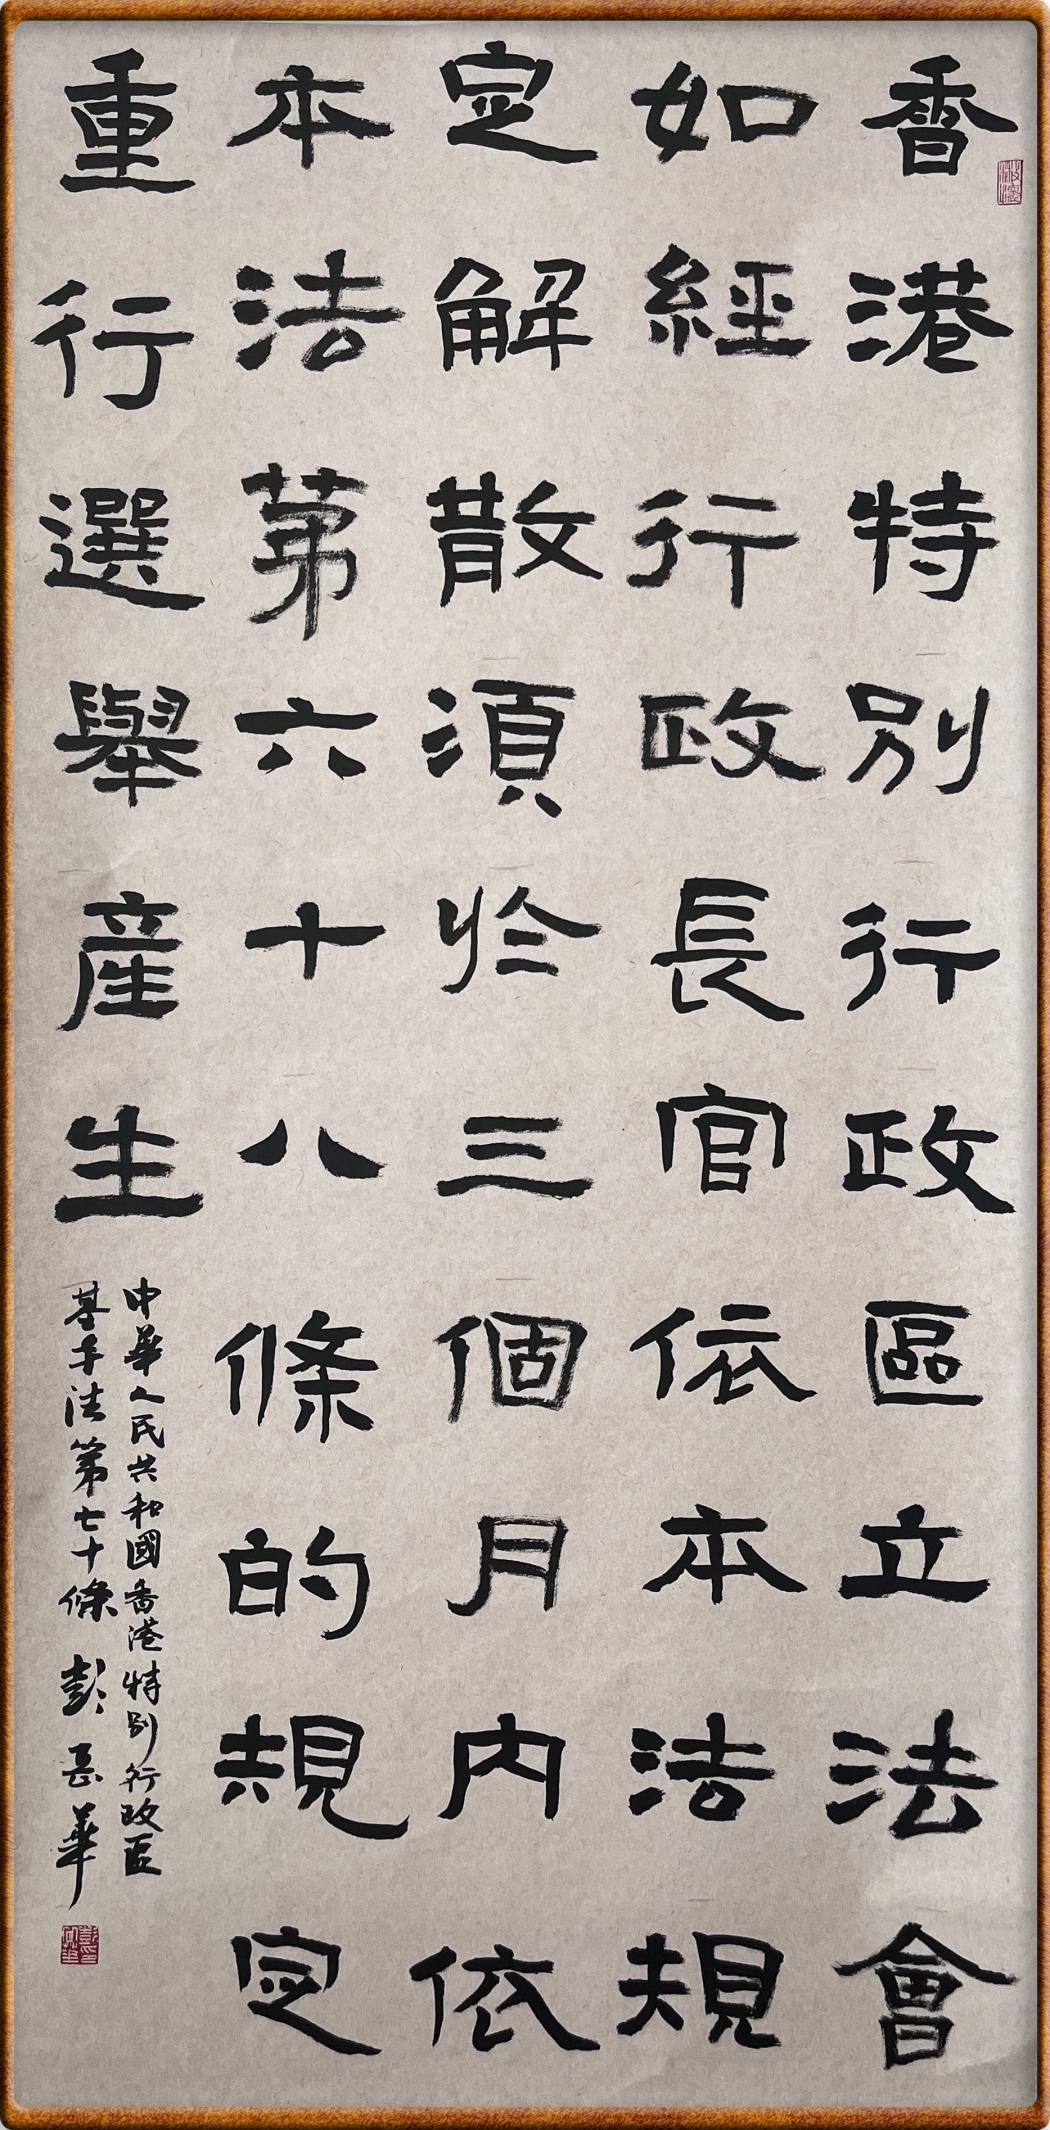 香港特別行政區立法會
如經行政長官依本法規
定解散須於三個月內依
本法第六十八條的規定
重行選舉產生
中華人民共和國香港特別行政區
基本法第七十條 彭岳華